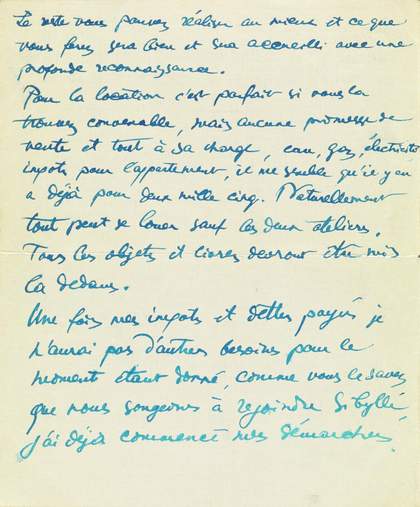 Le reste vous pouvez réaliser au mieux et ce que
vous ferez sera bien et sera accueilli avec une
profonde reconnaissance.
Pour la location c'est parfait si vous la
trouvez convenable, mais aucune promesse de
vente et tout à sa charge, eau, gaz, électricité
impots pour l'appartement, il me semble qu'il y en
a déjà pour deux mille cinq. Naturellement
tout peut se louer sauf les deux ateliers.
Tous les objets et livres devront être mis
là dedans.
Une fois mes impots et dettes payés je
n'aurai pas d'autres besoins pour le
moment étant donné, comme vous le savez
que nous songeons à rejoindre Sibylle,
j'ai déjà commencé mes démarches.